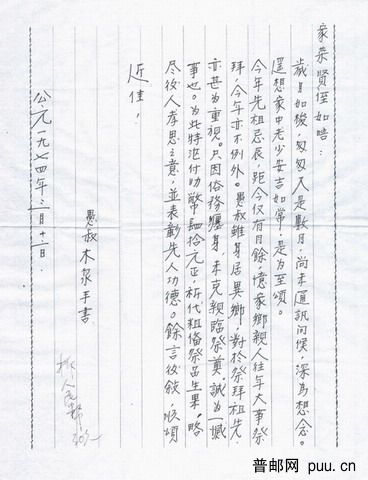 家荣贤侄如晤：
歲月如梭，匆匆又是數月，尚未通訊问候，深為想念。
遥想家中老少安吉如常！是为至頌。
今年先祖忌辰，距今仅有月餘，憶家鄉親人往年大事祭
拜，今年亦不例外。愚叔雖身居異鄉，對於祭拜祖先，
亦甚为重視。只因俗務纏身，未克親臨祭奠，誠为一憾
事也。为此特滙付助幣 拾元正，祈代粗俻祭品生果，略
尽後人孝思之意，並表彰先人功德。餘言後敘，順頌
近佳！
愚叔木泉手書
公元一九七四年 月十二日
人民幣
普邮网 puu.cn